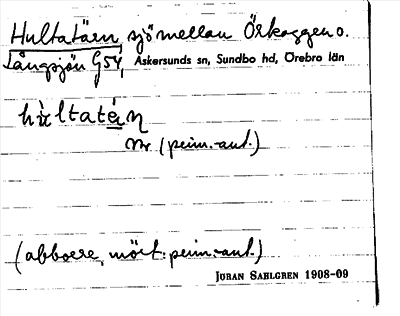 Hultatäen, sjö mellan Örkaggen o.
Långsjön G54, Askersunds sn, Sundbo hd, Örebro län
hùltatèn
nr (peim.-ant.)
(abborre, mört: peim.-ant.)
JÖRAN SAHLGREN 1908-09